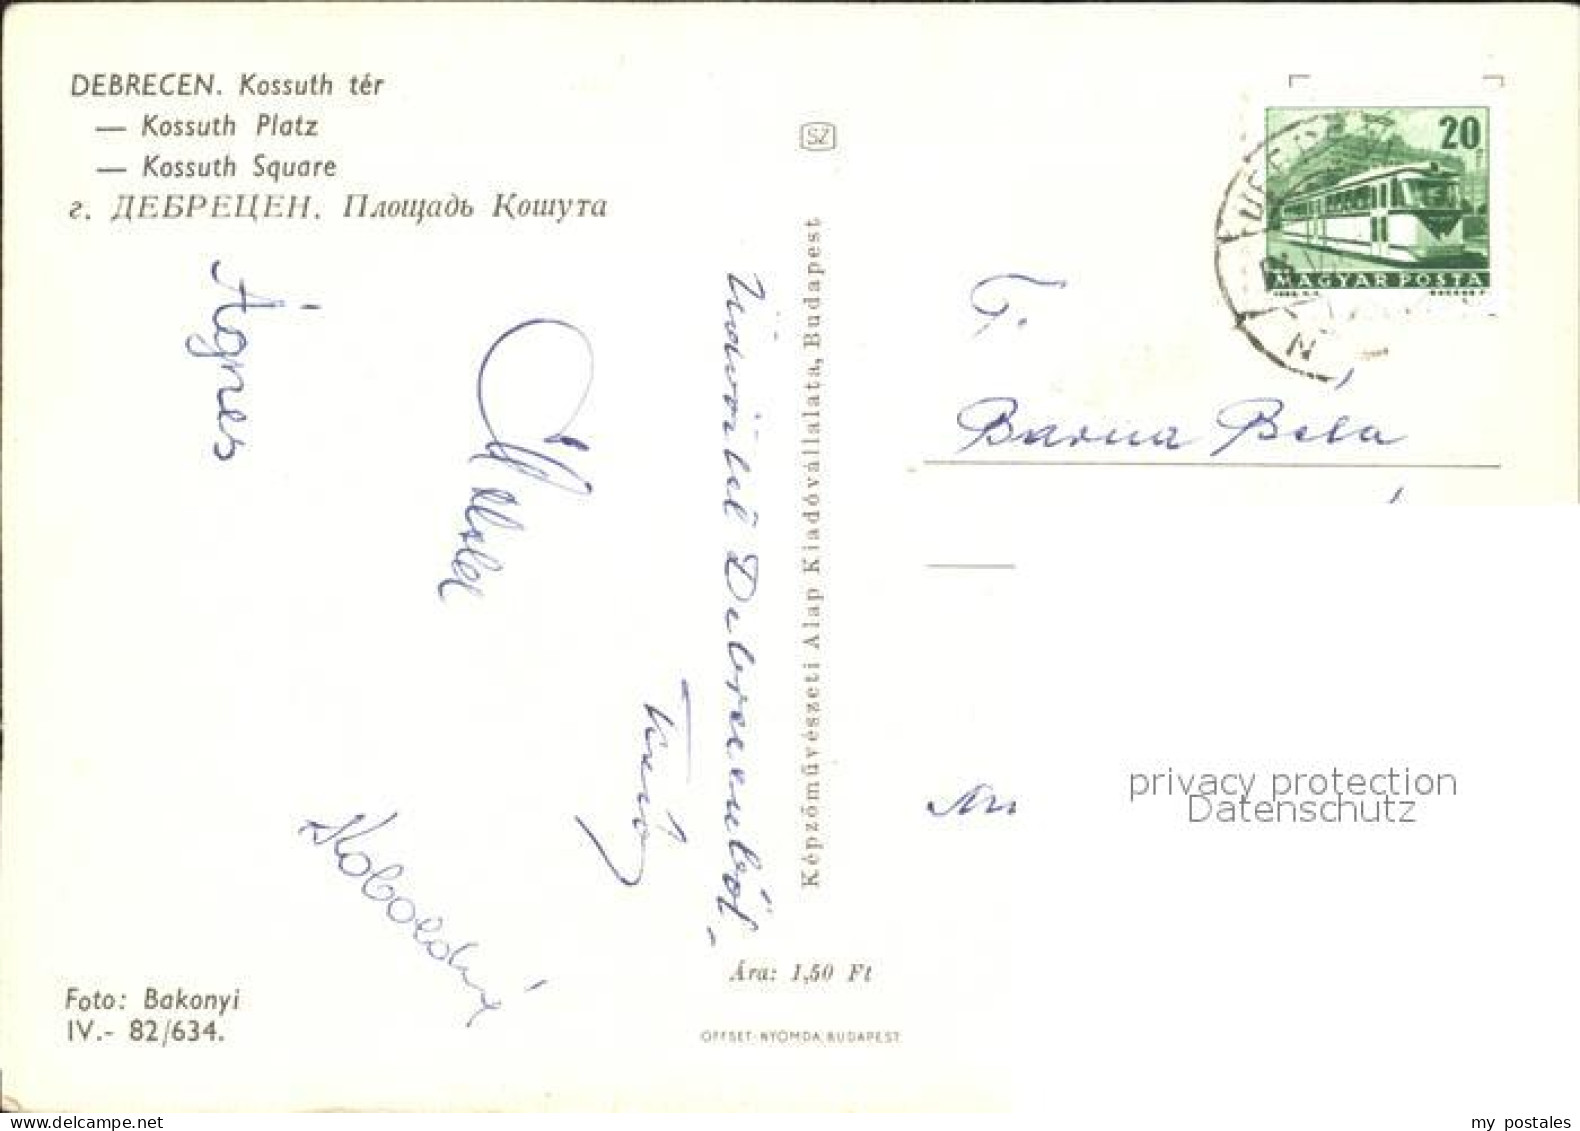 DEBRECEN. Kossuth tér
— Kossuth Platz
— Kossuth Square
г. ДЕБРЕЦЕН. Площадь Кошута
SZ
20
MAGYAR POSTA
Üdvözlet Debrecenből
Ágnes
Képzőművészeti Alap Kiadóvállalata, Budapest
T.
Barna Béla
privacy protection
Datenschutz
Ára: 1,50 Ft
Foto: Bakonyi
IV.- 82/634.
OFFSET-NYOMDA, BUDAPEST
my postales
www.delcampe.net